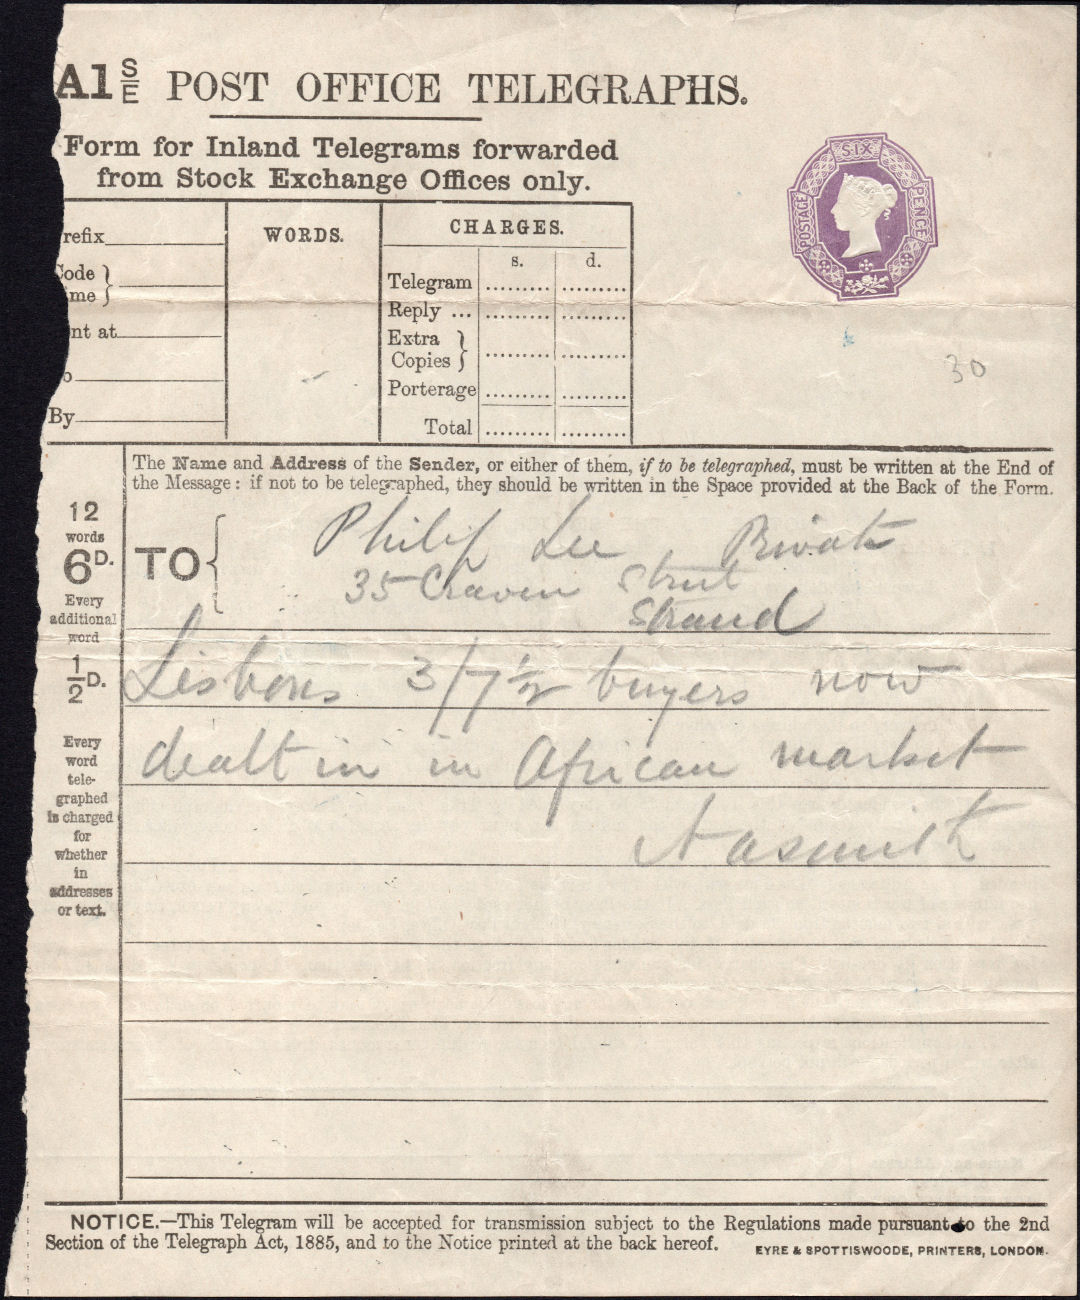 A1 S/E POST OFFICE TELEGRAPHS.
Form for Inland Telegrams forwarded
from Stock Exchange Offices only.
SIX
POSTAGE
PENCE
refix
WORDS.
CHARGES.
s. d.
Code }
me
Telegram
Reply ...
nt at
Extra }
Copies
o
Porterage
By
Total
30
The Name and Address of the Sender, or either of them, if to be telegraphed, must be written at the End of
the Message: if not to be telegraphed, they should be written in the Space provided at the Back of the Form.
12
words
6D.
Every
additional
word
1/2D.
Every
word
tele-
graphed
is charged
for
whether
in
addresses
or text.
TO {
Philip Lee Private
35 Craven Street
Strand
Lisbons 3/7 1/2 buyers now
dealt in in African market
Nasmith
NOTICE.—This Telegram will be accepted for transmission subject to the Regulations made pursuant to the 2nd
Section of the Telegraph Act, 1885, and to the Notice printed at the back hereof.
EYRE & SPOTTISWOODE, PRINTERS, LONDON.